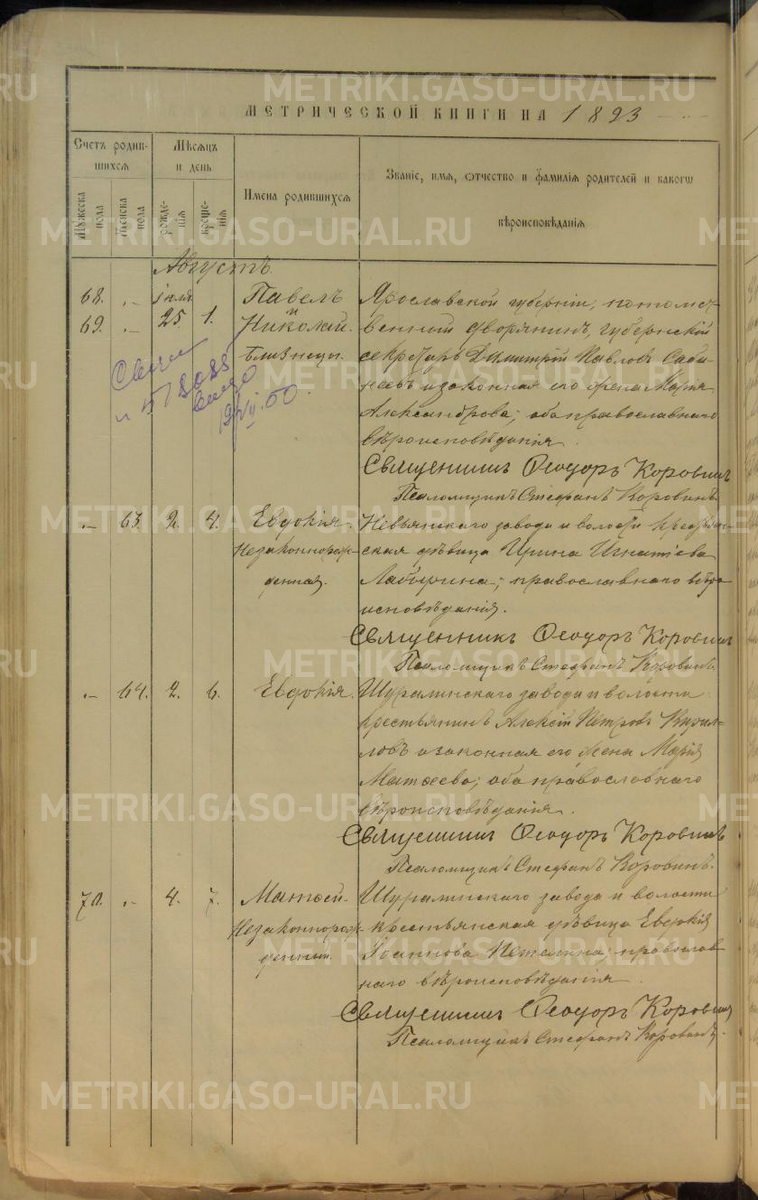 МЕТРИЧЕСКОЙ КНИГИ НА 1893
Счетъ родив-
шихся
Мѣсяцъ
и день
Имена родившихся
Званіе, имя, отчество и фамилія родителей и какогѡ
вѣроисповѣданія
Мужеска
пола
Женска
пола
рожде-
нія
креще-
нія
Августъ
68. „ іюля Павелъ Ярославской губерніи, потомст-
69. „ 25 1. и Николай венной дворянинъ, губернскій
близнецы. секретарь Димитрій Павловъ Саби-
неевъ и законная его жена Марія
Александрова; оба православнаго
вѣроисповѣданія.
Священникъ Ѳеодоръ Коровинъ
Псаломщикъ Стефанъ Коровинъ.
„ 63 2. 4. Евдокія Невьянскаго завода и волости крестьян-
Незаконнорож- ская дѣвица Ирина Игнатіева
денная. православнаго вѣро
исповѣданія.
Священникъ Ѳеодоръ Коровинъ
Псаломщикъ Стефанъ Коровинъ.
„ 64. 2. 6. Евдокія. Шуралинскаго завода и волости
крестьянинъ Алексій Петровъ Кирил-
ловъ и законная его жена Марія
Матѳеева; оба православнаго
вѣроисповѣданія.
Священникъ Ѳеодоръ Коровинъ
Псаломщикъ Стефанъ Коровинъ.
70. „ 4. 7. Матѳей. Шуралинскаго завода и волости
Незаконнорож- крестьянская дѣвица Евдокія
денный. Іоаннова православ
наго вѣроисповѣданія.
Священникъ Ѳеодоръ Коровинъ
Псаломщикъ Стефанъ Коровинъ.
METRIKI.GASO-URAL.RU